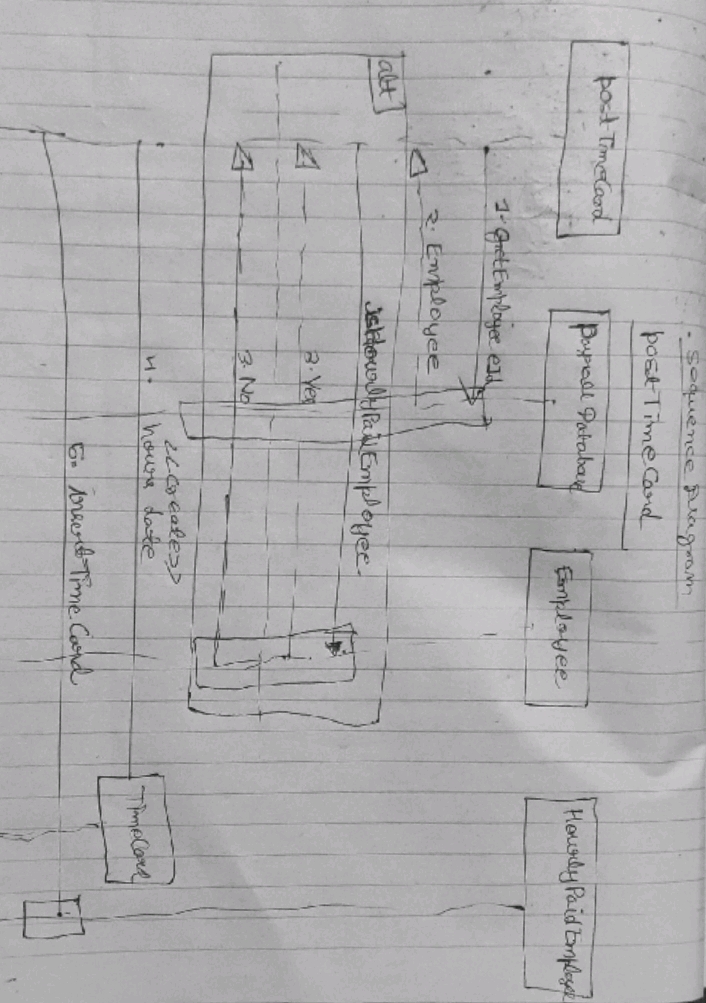 . Sequence Diagram
postTimeCard
postTimeCard
Payroll Databas
Employee
HourlyPaidEmployee
1. getEmployee eId
2. Employee
alt
isHourlyPaidEmployee.
3. Yes
3. No
<<create>>
4. hours date
TimeCard
5. insertTimeCard